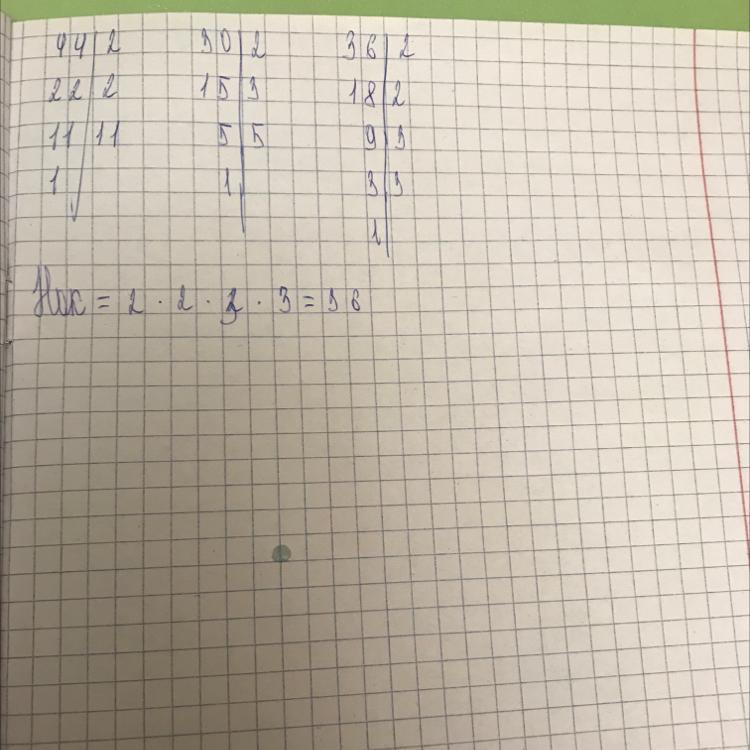 44 | 2 30 | 2 36 | 2
22 | 2 15 | 3 18 | 2
11 | 11 5 | 5 9 | 3
1 | 1 | 3 | 3
1 |
Нок = 2 · 2 · 3 · 3 = 36